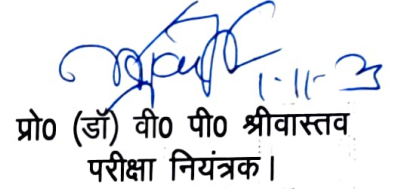 1-11-23
प्रो0 (डॉ) वी0 पी0 श्रीवास्तव
परीक्षा नियंत्रक।